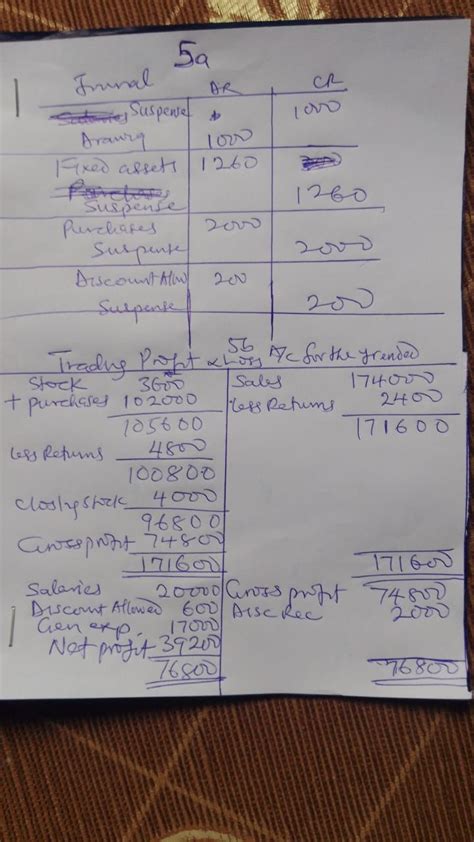 5a
Jrnal DR CR
Suspense 1000
Drawing 1000
Fixed assets 1260
Suspense 1260
Purchases 2000
Suspense 2000
Discount Allow 200
Suspense 200
5b
Trading Profit & Loss A/c for the yr ended
Stock 3600 Sales 174000
+ purchases 102000 less Returns 2400
105600 171600
less Returns 4800
100800
Closing stock 4000
96800
Gross profit 74800
171600 171600
Salaries 20000 Gross profit 74800
Discount Allowed 600 Disc Rec 2000
Gen exp. 17000
Net profit 39200
76800 76800